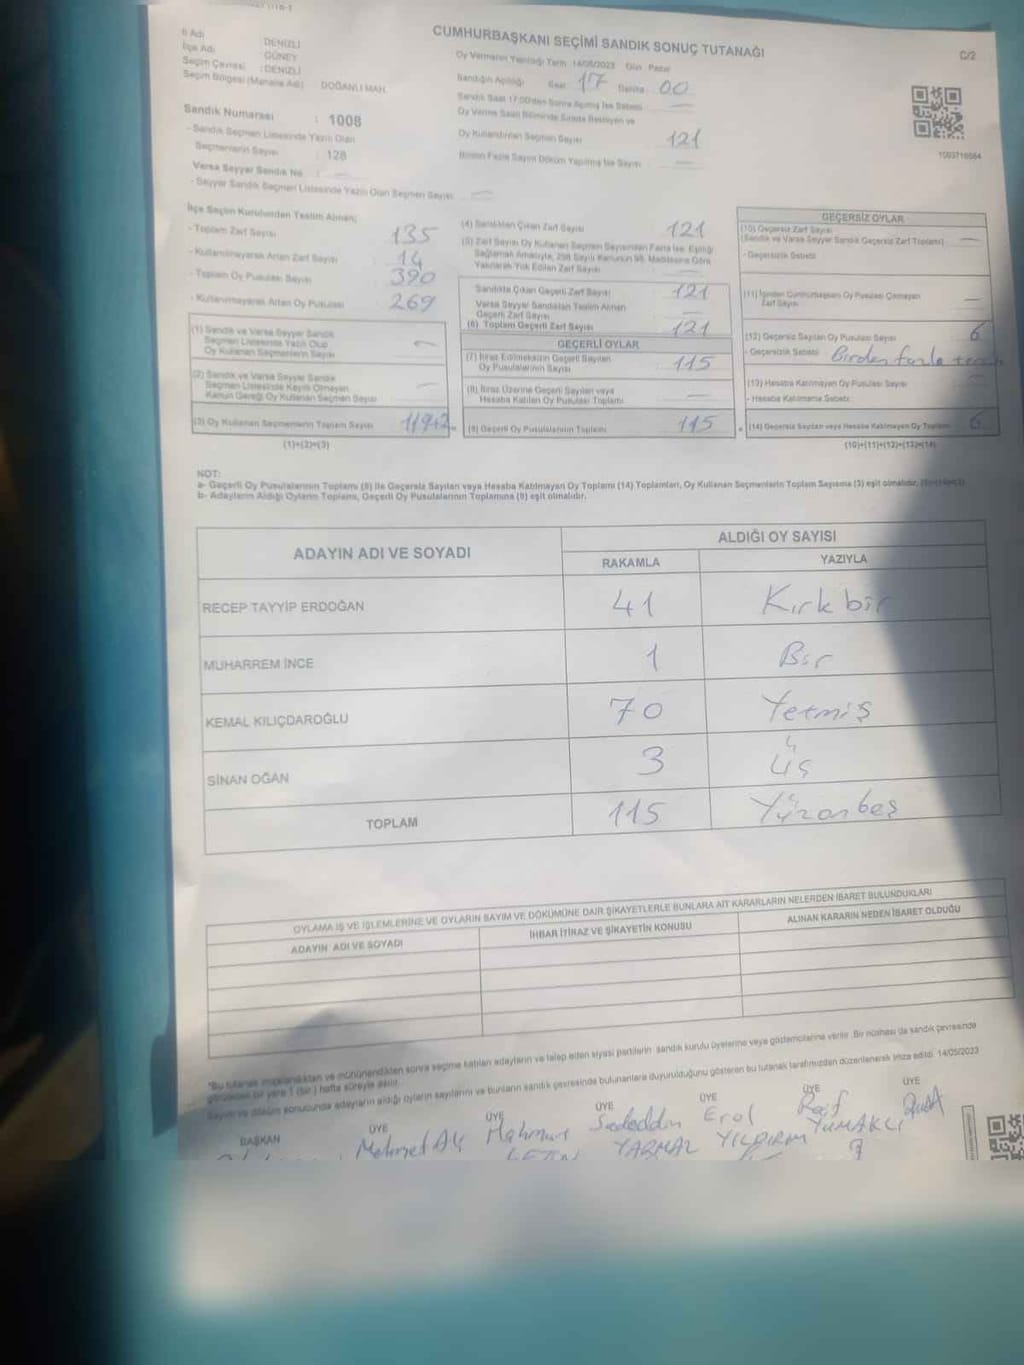 CUMHURBAŞKANI SEÇİMİ SANDIK SONUÇ TUTANAĞI
C/2
İl Adı : DENİZLİ
İlçe Adı : GÜNEY
Seçim Çevresi : DENİZLİ
Seçim Bölgesi (Mahalle Adı) : DOĞANLI MAH.
Oy Vermenin Yapıldığı Tarih 14/05/2023 Gün Pazar
Sandığın Açıldığı Saat 17 Dakika 00
Sandık Saat 17.00'den Sonra Açılmış İse Sebebi —
Oy Verme Saati Bitiminde Sırada Bekleyen ve
Oy Kullandırılan Seçmen Sayısı 121
Birden Fazla Sayım Döküm Yapılmış İse Sayısı —
1003716564
Sandık Numarası : 1008
- Sandık Seçmen Listesinde Yazılı Olan
Seçmenlerin Sayısı : 128
Varsa Seyyar Sandık No —
- Seyyar Sandık Seçmen Listesinde Yazılı Olan Seçmen Sayısı —
İlçe Seçim Kurulundan Teslim Alınan;
- Toplam Zarf Sayısı 135
- Kullanılmayarak Artan Zarf Sayısı 14
- Toplam Oy Pusulası Sayısı 390
- Kullanılmayarak Artan Oy Pusulası 269
(1) Sandık ve Varsa Seyyar Sandık
Seçmen Listesinde Yazılı Olup
Oy Kullanan Seçmenlerin Sayısı —
(2) Sandık ve Varsa Seyyar Sandık
Seçmen Listesinde Kayıtlı Olmayan
Kanun Gereği Oy Kullanan Seçmen Sayısı —
(3) Oy Kullanan Seçmenlerin Toplam Sayısı
(1)+(2)=(3)
(4) Sandıktan Çıkan Zarf Sayısı 121
(5) Zarf Sayısı Oy Kullanan Seçmen Sayısından Fazla İse, Eşitliği
Sağlamak Amacıyla, 298 Sayılı Kanunun 98. Maddesine Göre
Yakılarak Yok Edilen Zarf Sayısı —
Sandıkta Çıkan Geçerli Zarf Sayısı 121
Varsa Seyyar Sandıktan Teslim Alınan
Geçerli Zarf Sayısı —
(6) Toplam Geçerli Zarf Sayısı 121
GEÇERLİ OYLAR
(7) İtiraz Edilmeksizin Geçerli Sayılan
Oy Pusulalarının Sayısı 115
(8) İtiraz Üzerine Geçerli Sayılan veya
Hesaba Katılan Oy Pusulası Toplamı —
(9) Geçerli Oy Pusulalarının Toplamı 115
GEÇERSİZ OYLAR
(10) Geçersiz Zarf Sayısı
(Sandık ve Varsa Seyyar Sandık Geçersiz Zarf Toplamı) —
- Geçersizlik Sebebi
(11) İçinden Cumhurbaşkanı Oy Pusulası Çıkmayan
Zarf Sayısı —
(12) Geçersiz Sayılan Oy Pusulası Sayısı 6
- Geçersizlik Sebebi Birden fazla
(13) Hesaba Katılmayan Oy Pusulası Sayısı —
- Hesaba Katılmama Sebebi
(14) Geçersiz Sayılan veya Hesaba Katılmayan Oy Toplamı 6
(10)+(11)+(12)+(13)=(14)
NOT:
a- Geçerli Oy Pusulalarının Toplamı (9) ile Geçersiz Sayılan veya Hesaba Katılmayan Oy Toplamı (14) Toplamları, Oy Kullanan Seçmenlerin Toplam Sayısına (3) eşit olmalıdır.
b- Adayların Aldığı Oyların Toplamı, Geçerli Oy Pusulalarının Toplamına (9) eşit olmalıdır.
ADAYIN ADI VE SOYADI
ALDIĞI OY SAYISI
RAKAMLA YAZIYLA
RECEP TAYYİP ERDOĞAN 41 Kırk bir
MUHARREM İNCE 1 Bir
KEMAL KILIÇDAROĞLU 70 Yetmiş
SİNAN OĞAN 3 üç
TOPLAM 115 Yüzonbeş
OYLAMA İŞ VE İŞLEMLERİNE VE OYLARIN SAYIM VE DÖKÜMÜNE DAİR ŞİKAYETLERLE BUNLARA AİT KARARLARIN NELERDEN İBARET BULUNDUKLARI
ADAYIN ADI VE SOYADI İHBAR İTİRAZ VE ŞİKAYETİN KONUSU ALINAN KARARIN NEDEN İBARET OLDUĞU
"Bu tutanak imzalandıktan ve mühürlendikten sonra seçime katılan adayların ve talep eden siyasi partilerin sandık kurulu üyelerine veya gözlemcilerine verilir. Bir nüshası da sandık çevresinde
görülecek bir yere 1 (bir) hafta süreyle asılır.
Sayım ve döküm sonucunda adayların aldığı oyların sayılarını ve bunların sandık çevresinde bulunanlara duyurulduğunu gösteren bu tutanak tarafımızdan düzenlenerek imza edildi. 14/05/2023
BAŞKAN ÜYE ÜYE ÜYE ÜYE ÜYE ÜYE
Mehmet Ali Mahmut Sadeddin Erol Raif
YILDIRIM YUMAKLI